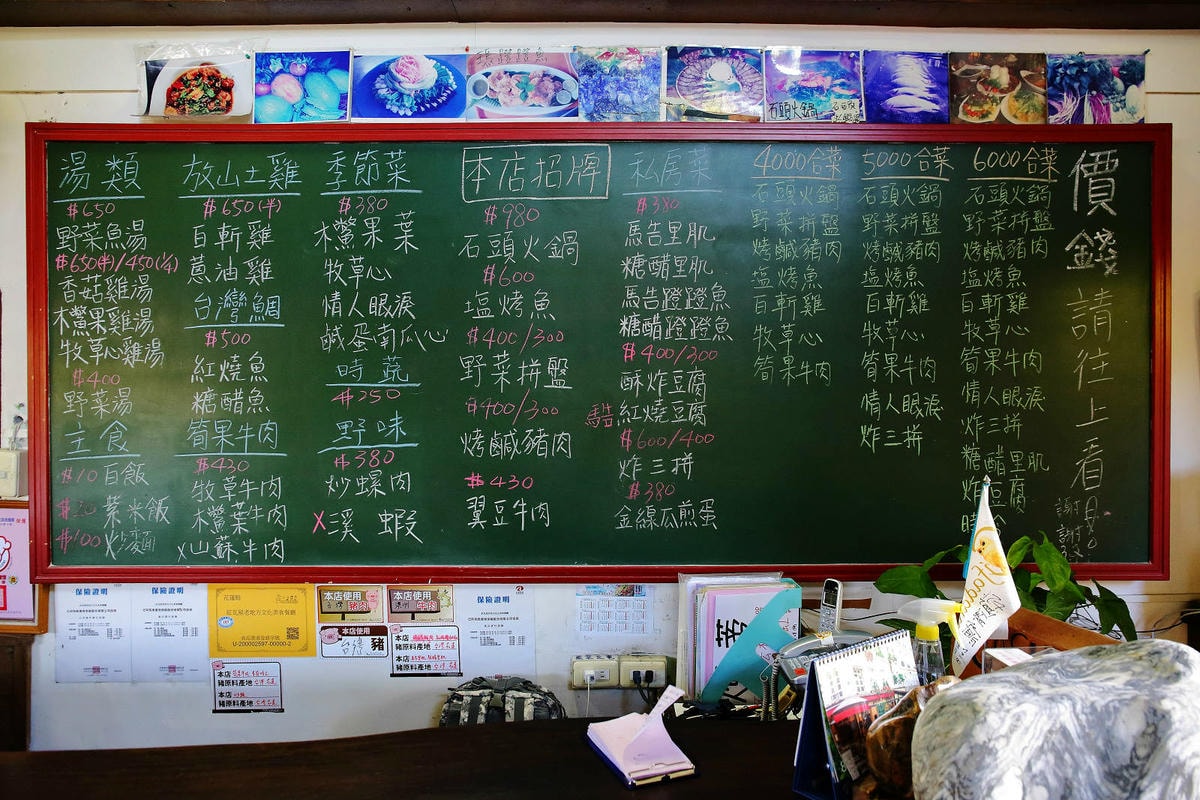 石頭火鍋
湯類
$650
野菜魚湯
$650(半)/450(¼)
香菇雞湯
木鱉果雞湯
牧草心雞湯
$400
野菜湯
主食
$10白飯
$20 紫米飯
$100 X湯麵
放山土雞
$650(半)
百斬雞
蔥油雞
台灣鯛
$500
紅燒魚
糖醋魚
筍果牛肉
$430
牧草牛肉
木鱉葉牛肉
X山蘇牛肉
季節菜
$380
木鱉果菜
牧草心
情人眼淚
鹹蛋南瓜心
時蔬
$250
野味
$380
炒螺肉
X溪蝦
本店招牌
$980
石頭火鍋
$600
塩烤魚
$400/300
野菜拼盤
$400/300
烤鹹豬肉
$430
翼豆牛肉
私房菜
$380
馬告里肌
糖醋里肌
馬告蹬蹬魚
糖醋蹬蹬魚
$400/300
酥炸豆腐
馬告紅燒豆腐
$600/400
炸三拼
$380
金線瓜煎蛋
4000合菜
石頭火鍋
野菜拼盤
烤鹹豬肉
塩烤魚
百斬雞
牧草心
筍果牛肉
5000合菜
石頭火鍋
野菜拼盤
烤鹹豬肉
塩烤魚
百斬雞
牧草心
筍果牛肉
情人眼淚
炸三拼
6000合菜
石頭火鍋
野菜拼盤
烤鹹豬肉
塩烤魚
百斬雞
牧草心
筍果牛肉
情人眼淚
炸三拼
糖醋里肌
炸豆腐
價錢請往上看
謝謝
保險證明
保險證明
花蓮縣
U-200002597-00000-2
本店使用
豬肉
本店使用
牛肉
保險證明
本店使用
台灣豬
本店
豬原料產地:
本店
豬原料產地:
本店
豬原料產地: